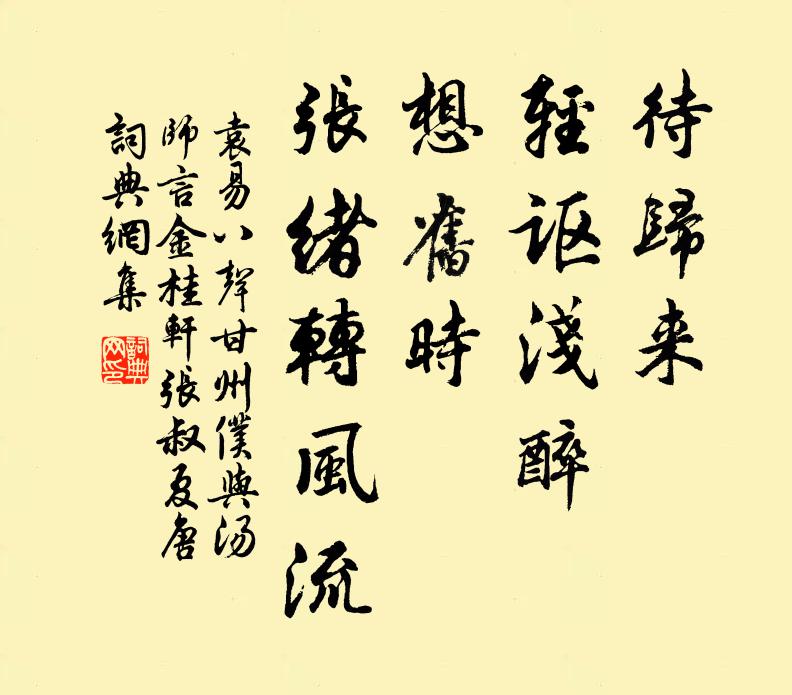 待歸来
輕讴淺醉
想舊時
張緒轉風流
袁易八聲甘州僕與汤
師言金桂軒張叔夏唐
詞典網集
詞典
网印